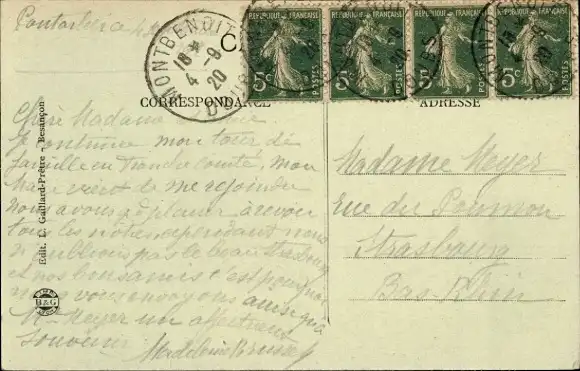 MONTBENOIT
18 *
4 - 9
20
DOUBS
REPUBLIQUE FRANÇAISE
5c
POSTES
REPUBLIQUE FRANÇAISE
5c
POSTES
REPUBLIQUE FRANÇAISE
5c
POSTES
REPUBLIQUE FRANÇAISE
5c
POSTES
CORRESPONDANCE
ADRESSE
Edit. L. Gaillard-Prêtre - Besançon
B & G
Chère Madame
Je continue mon tour de
famille en Franche Comté, mon
mari vient de me rejoindre
nous avons à revoir
tous les nôtres, cependant nous
n'oublions pas le beau Strasbourg
et nos bons amis c'est pourquoi
nous vous envoyons ainsi qu'à
Mr Meyer un affectueux
souvenir
Madeleine
Madame Meyer
rue du Poumon
Strasbourg
Bas Rhin